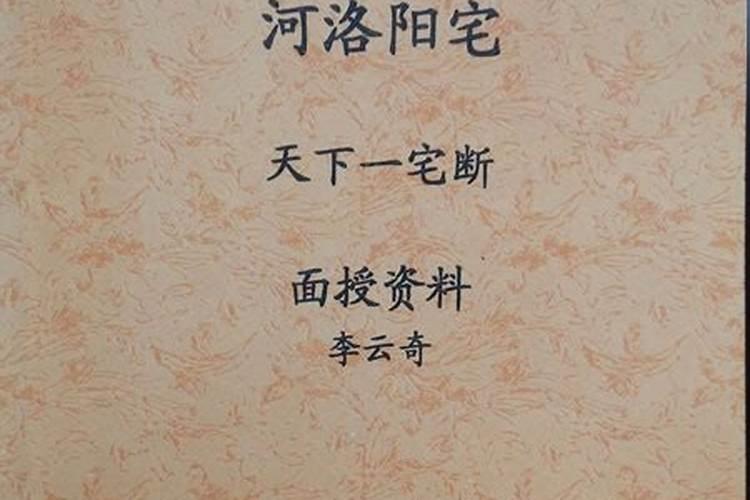 河洛阳宅
天下一宅断
面授资料
李云奇